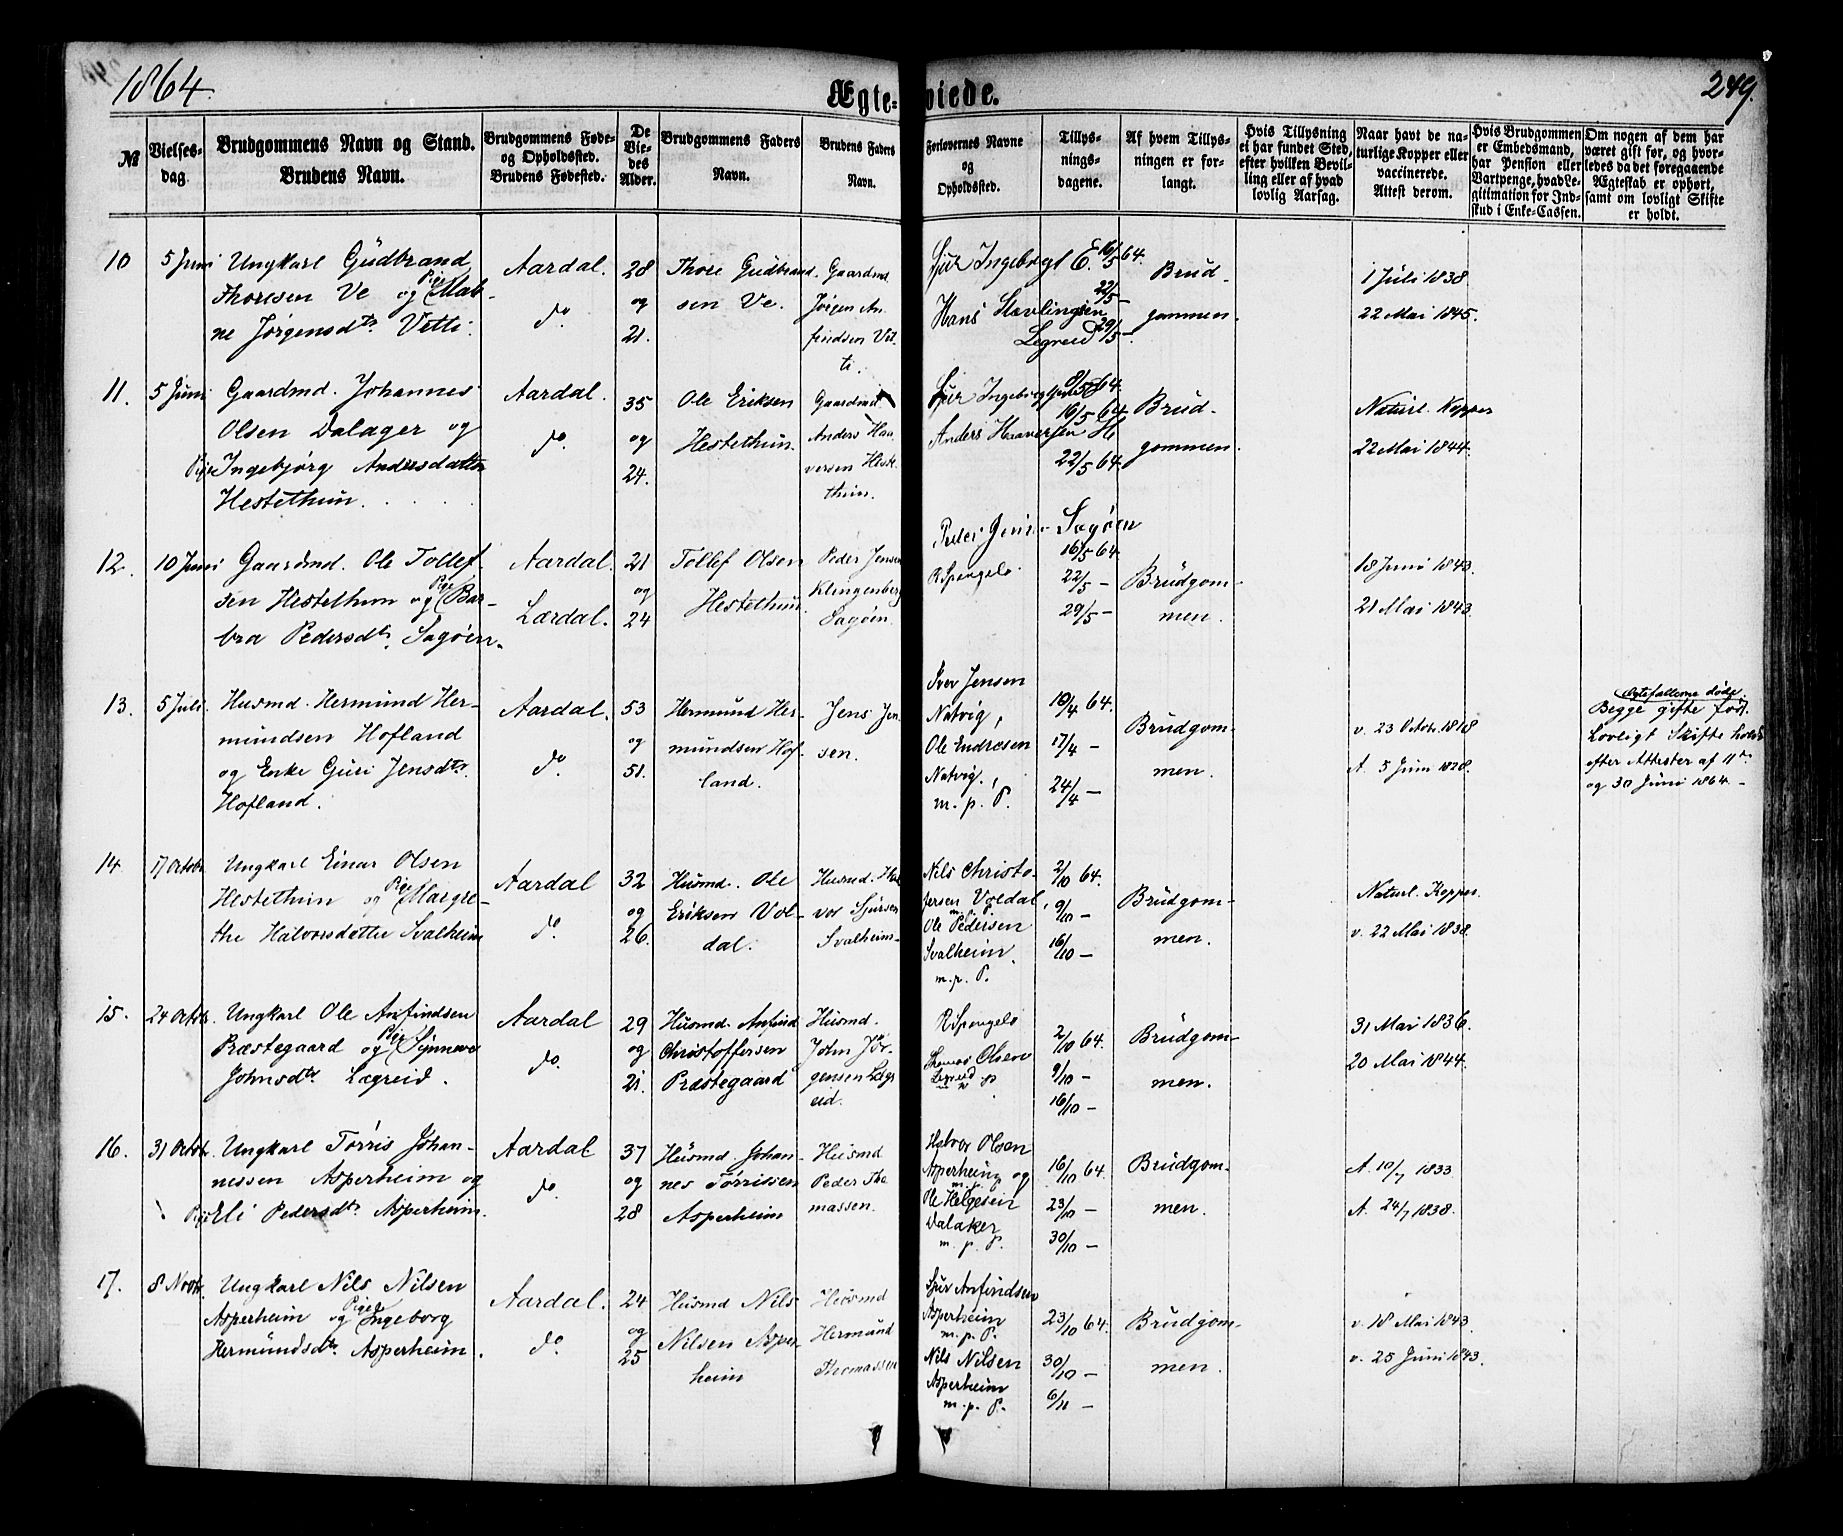 1864.
Ægte-viede.
249.
№
Vielses-dag.
Brudgommens Navn og Stand. Brudens Navn.
Brudgommens Føde- og Opholdssted. Brudens Fødested.
De Viedes Alder.
Brudgommens Faders Navn.
Brudens Faders Navn.
Forlovernes Navne og Opholdssted.
Tillysningsdagene.
Af hvem Tillysningen er forlangt.
Hvis Tillysning ei har fundet Sted, efter hvilken Bevilling eller af hvad lovlig Aarsag.
Naar havt de naturlige Kopper eller vaccinerede. Attest derom.
Hvis Brudgommen er Embedsmand, har Pension eller Vartpenge, hvad Legitimation for Indskud i Enke-Cassen.
Om nogen af dem har været gift før, og hvorledes da det foregaaende Ægteskab er ophørt, samt om lovligt Skifte er holdt.
10
5 Juni
Ungkarl Gudbrand
Thoresen Ve og Pige Mab-
ne Jørgensdtr Vetti.
Aardal.
do.
28
og
21.
Thore Gudbrand-
sen Ve.
Gaardmd.
Jørgen An
findsen Vet-
ti.
Sjur Ingebrigt E.
Hans Stævlingsen
Legreid
16/5 64.
22/5 —
29/5 —
Brud-
gommen.
1 Juli 1838
22 Mai 1845.
11.
5 Juni
Gaardmd. Johannes
Olsen Dalager og
Pige Ingebjørg Andersdatter
Hestethun.
Aardal.
do.
35
og
24.
Ole Eriksen
Hestethun.
Gaardmd
Anders Haa
versen Heste
thun.
Sjur Ingebrigt
Anders Haaversen He
8/5 64.
16/5 64
22/5 64
Brud-
gommen.
Naturl. Kopper
22 Mai 1844.
12.
10 Juni
Gaardmd. Ole Tollef-
sen Hestethun og Pige Bar-
bra Pedersdtr. Sagøen.
Aardal.
Lærdal.
21
og
24
Tollef Olsen
Hestethun
Peder Jensen
Klingenberg
Sagøen.
Peder Jensen Sagøen
R Spengelo
16/5 64
22/5 —
29/5 —
Brudgom-
men.
18 Juni 1843.
21 Mai 1843.
13.
5 Juli.
Husmd. Hermund Her-
mundsen Hofland
og Enke Guri Jensdtr.
Hofland.
Aardal.
do.
53
og
51.
Hermund Her-
mundsen Hof-
land.
Jens Jen-
sen.
Iver Jensen
Natvig,
Ole Endresen
Natvig.
m. p. P.
10/4 64.
17/4 —
24/4 —
Brudgom-
men.
v. 23 Octbr. 1818
A. 5 Juni 1828.
Ægtefællerne døde.
Begge gifte før.
Lovligt Skifte holdt
efter Attester af 11te
og 30 Juni 1864.—
14.
17 Octobr.
Ungkarl Einar Olsen
Hestethun og Pige Margre-
the Halvorsdatter Svalheim
Aardal
do.
32
og
26.
Husmd. Ole
Eriksen Vol-
dal.
Husmd. Hal
vor Sjursen
Svalheim-
Nils Christo-
fersen Voldal,
m. p. P.
Ole Pedersen
Svalheim.
m. p. P.
2/10 64.
9/10 —
16/10 —
Brudgom-
men.
Naturl. Kopper.
v. 22 Mai 1838.
15.
24 Octobr.
Ungkarl Ole Anfindsen
Præstegaard og Pige Synneve
Johnsdtr. Lægreid.
Aardal
do.
29
og
21.
Husmd. Anfind
Christoffersen
Præstegaard
Husmd.
John Jør-
gensen Lægr
eid.
R Spengelo
Thomas Olsen
Legreid
2/10 64.
9/10 —
16/10 —
Brudgom-
men.
31 Mai 1836.
20 Mai 1844.
16.
31 Octobr.
Ungkarl Torris Johan-
nessen Asperheim og
Pige Eli Pedersdtr. Asperheim.
Aardal
do.
37
og
28
Husmd. Johan-
nes Torrissen
Asperheim
Husmd
Peder Tho
massen.
Halvor Olsen
Asperheim og
m. p. P.
Ole Helgesen
Dalaker
m. p. P.
16/10 64.
23/10 —
30/10 —
Brudgom-
men.
A. 10/7 1833
A. 24/7 1838.
17.
8 Novbr.
Ungkarl Nils Nilsen
Asperheim og Pige Ingeborg
Hermundsdtr. Asperheim.
Aardal.
do.
24
og
25
Husmd Nils
Nilsen Asper-
heim
Husmd
Hermund
Thomassen
Sjur Anfindsen
Asperheim
m. p. P.
Nils Nilsen
Asperheim
m. p. P.
23/10 64.
30/10 —
6/11 —
Brudgom-
men.
v. 18 Mai 1843.
v. 25 Juni 1843.